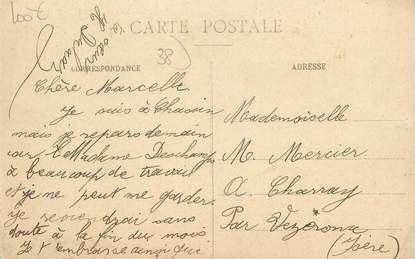 100€
CARTE POSTALE
38
CORRESPONDANCE
ADRESSE
Chère Marcelle
Je suis à
mais je repars demain
car Madame Deschamps
à beaucoup de travail
et je ne peut me garder.
Je reviendrai sans
doute à la fin du mois
Je t'embrasse ainsi que
Mademoiselle
M. Mercier
A Charray
Par Vezeronce
(Isère)